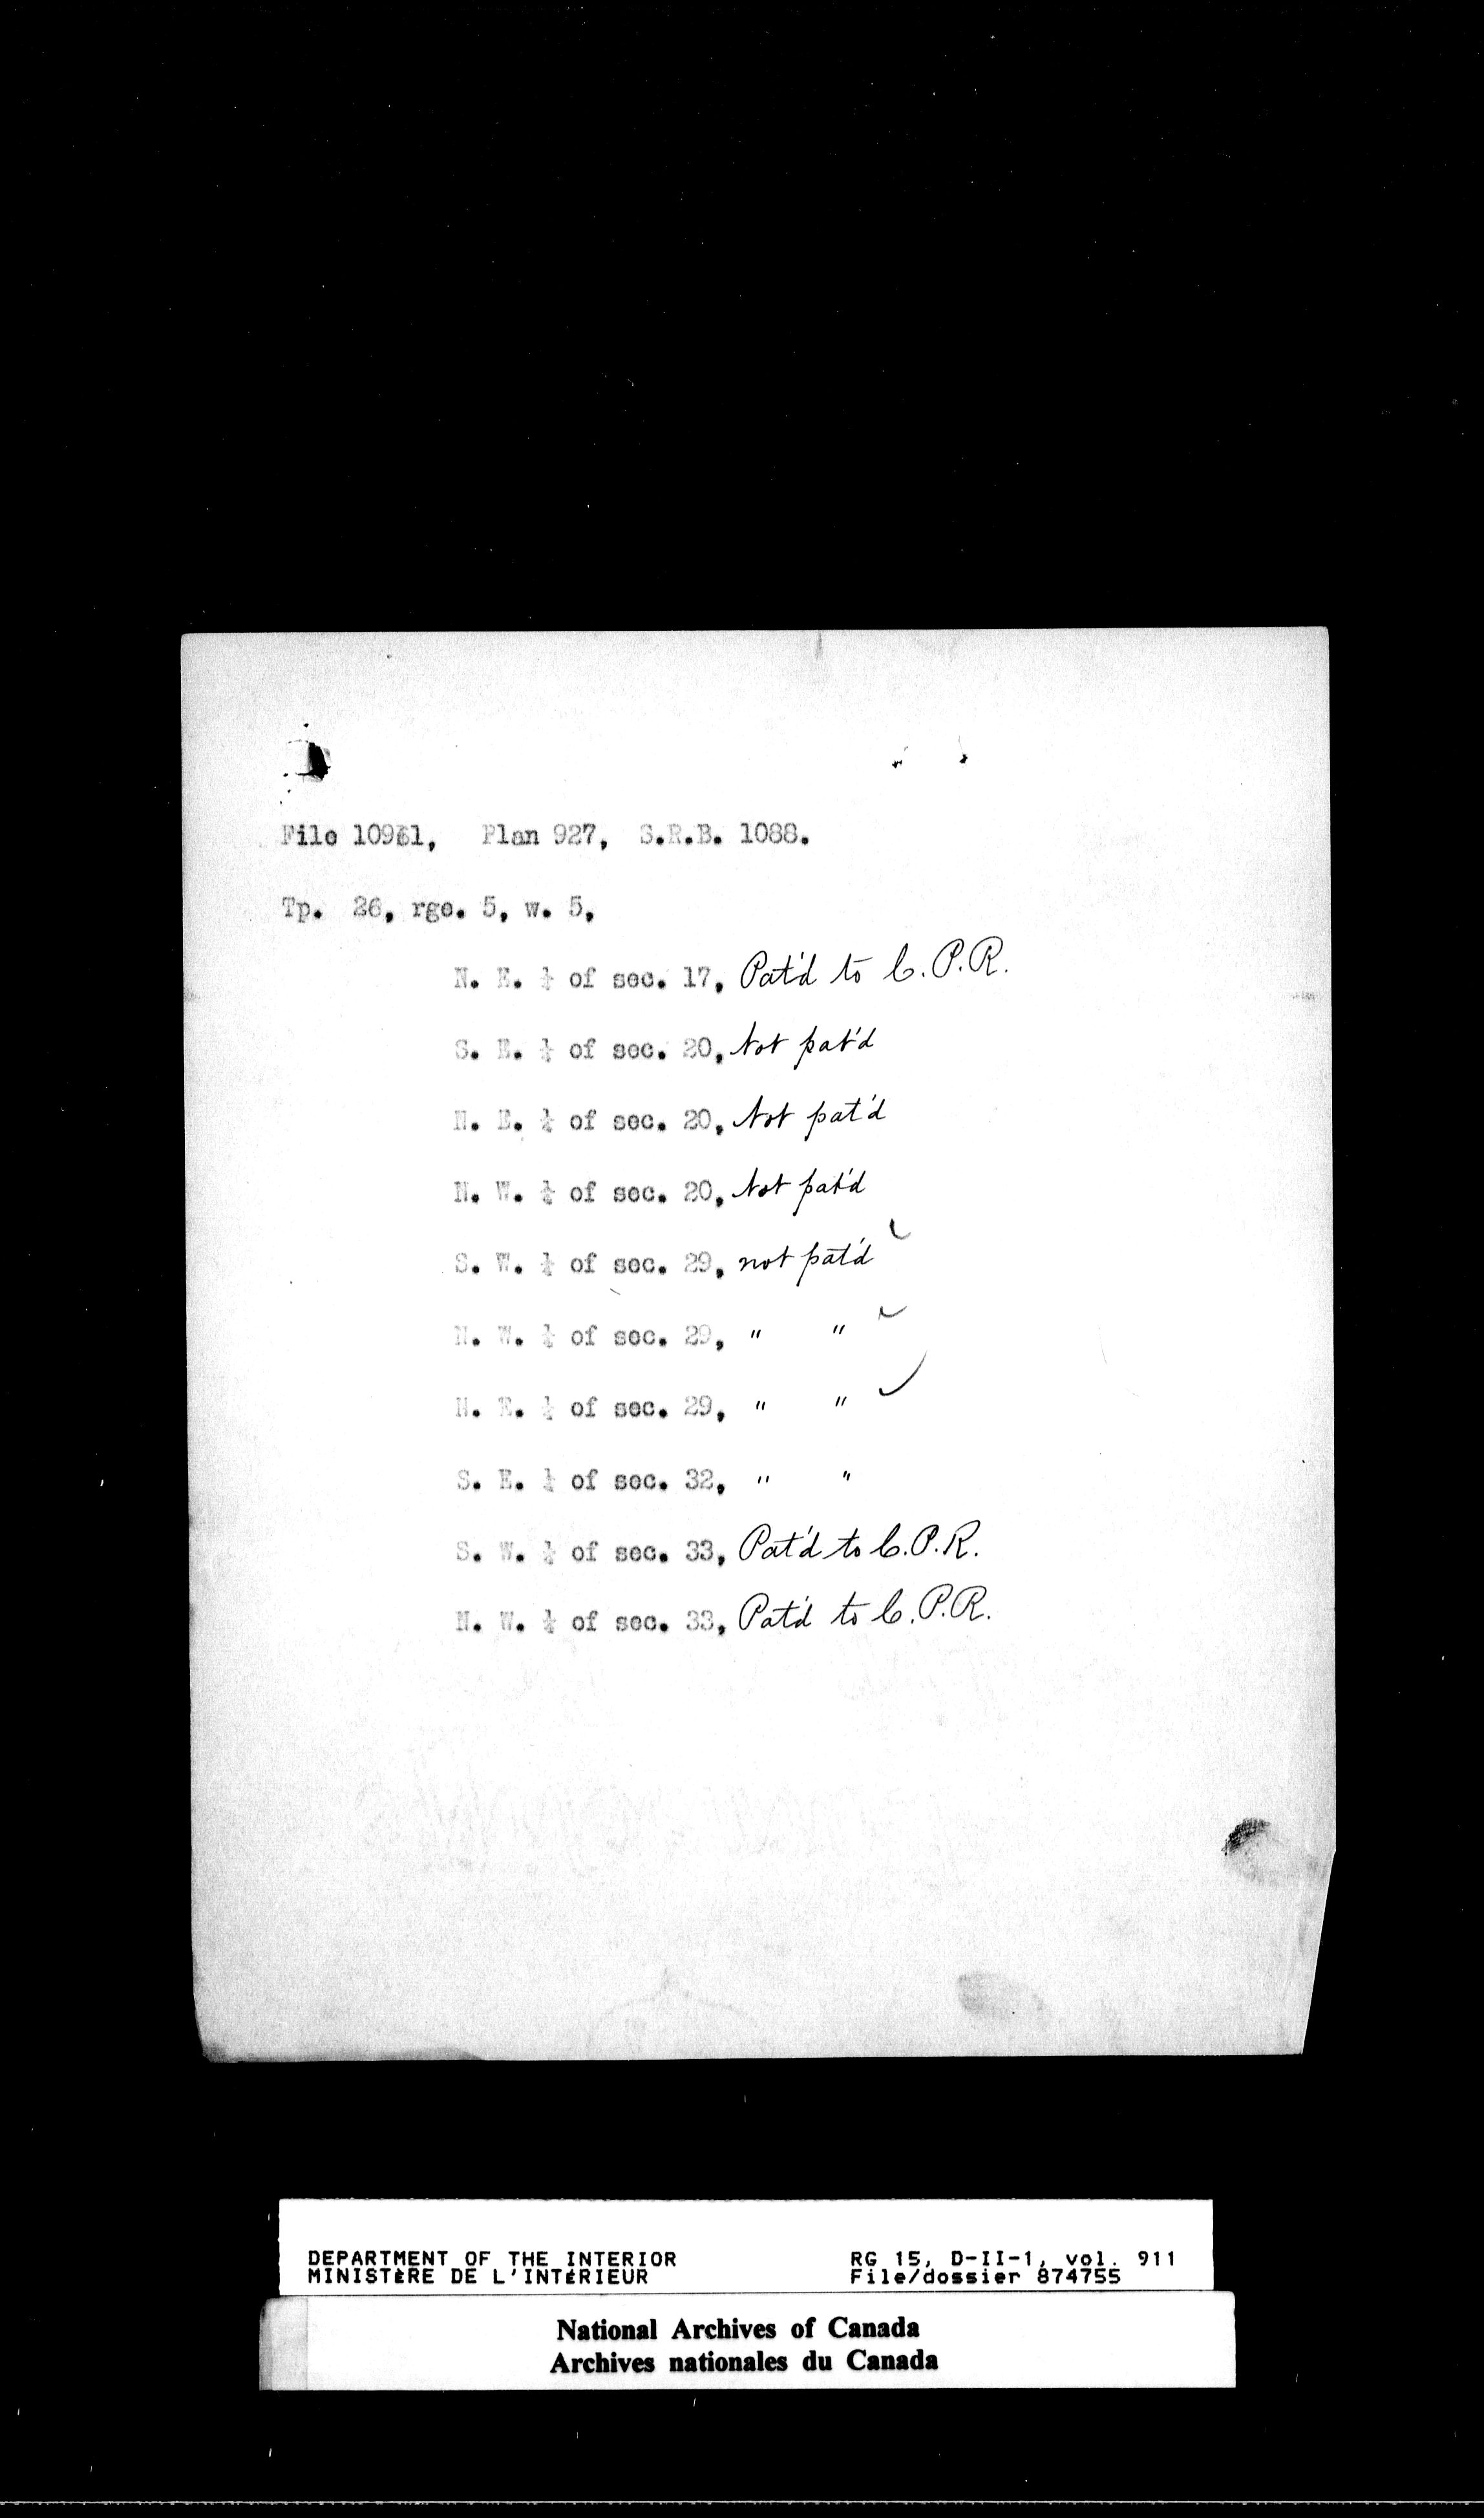 File 10961, Plan 927, S.R.B. 1088.
Tp. 26, rge. 5, w. 5,
N. E. ¼ of sec. 17, Pat'd to C.P.R.
S. E. ¼ of sec. 20, Not pat'd
N. E. ¼ of sec. 20, Not pat'd
N. W. ¼ of sec. 20, Not pat'd
S. W. ¼ of sec. 29, not pat'd ✓
N. W. ¼ of sec. 29, " " ✓
N. E. ¼ of sec. 29, " " ✓
S. E. ¼ of sec. 32, " "
S. W. ¼ of sec. 33, Pat'd to C.P.R.
N. W. ¼ of sec. 33, Pat'd to C.P.R.
DEPARTMENT OF THE INTERIOR RG 15, D-II-1, vol. 911
MINISTÈRE DE L'INTÉRIEUR File/dossier 874755
National Archives of Canada
Archives nationales du Canada